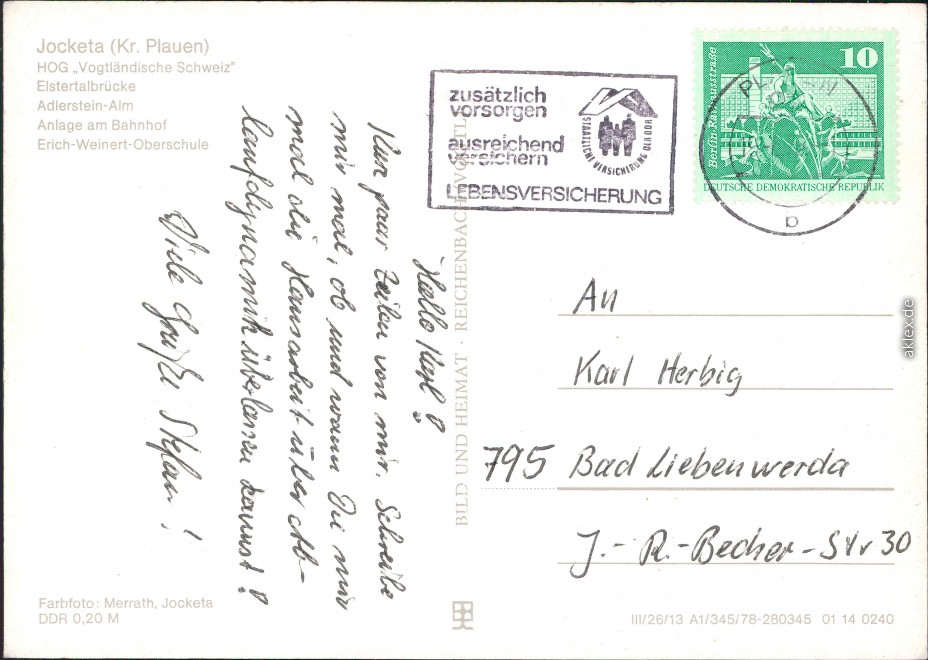 Jocketa (Kr. Plauen)
HOG „Vogtländische Schweiz"
Elstertalbrücke
Adlerstein-Alm
Anlage am Bahnhof
Erich-Weinert-Oberschule
zusätzlich
vorsorgen
ausreichend
versichern
LEBENSVERSICHERUNG
STAATLICHE VERSICHERUNG DER DDR
10
Berlin, Rathausstraße
DEUTSCHE DEMOKRATISCHE REPUBLIK
PLAUEN
b
Hallo Karl!
Nur paar Zeilen von mir. Schreibe
mir mal, ob und wann Du mir
mal die Hausarbeit über Ab-
laufdynamik überlassen kannst!
Viele Grüße Stefan!
BILD UND HEIMAT · REICHENBACH VOGTL
An
Karl Herbig
795 Bad Liebenwerda
J.-R.-Becher-Str 30
Farbfoto: Merrath, Jocketa
DDR 0,20 M
III/26/13 A1/345/78-280345 01 14 0240
aklex.de